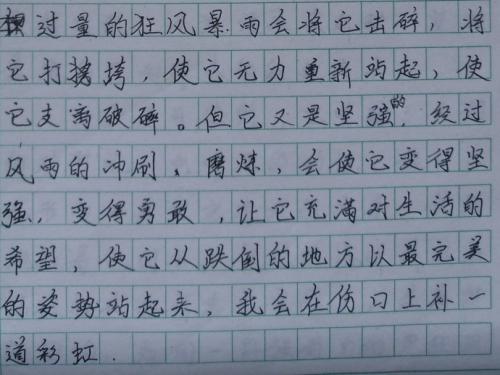 过量的狂风暴雨会将它击碎，将
它打垮，使它无力重新站起，使
它支离破碎。但它又是坚强的，经过
风雨的冲刷、磨炼，会使它变得坚
强，变得勇敢，让它充满对生活的
希望，使它从跌倒的地方以最完美
的姿势站起来，我会在伤口上补一
道彩虹．